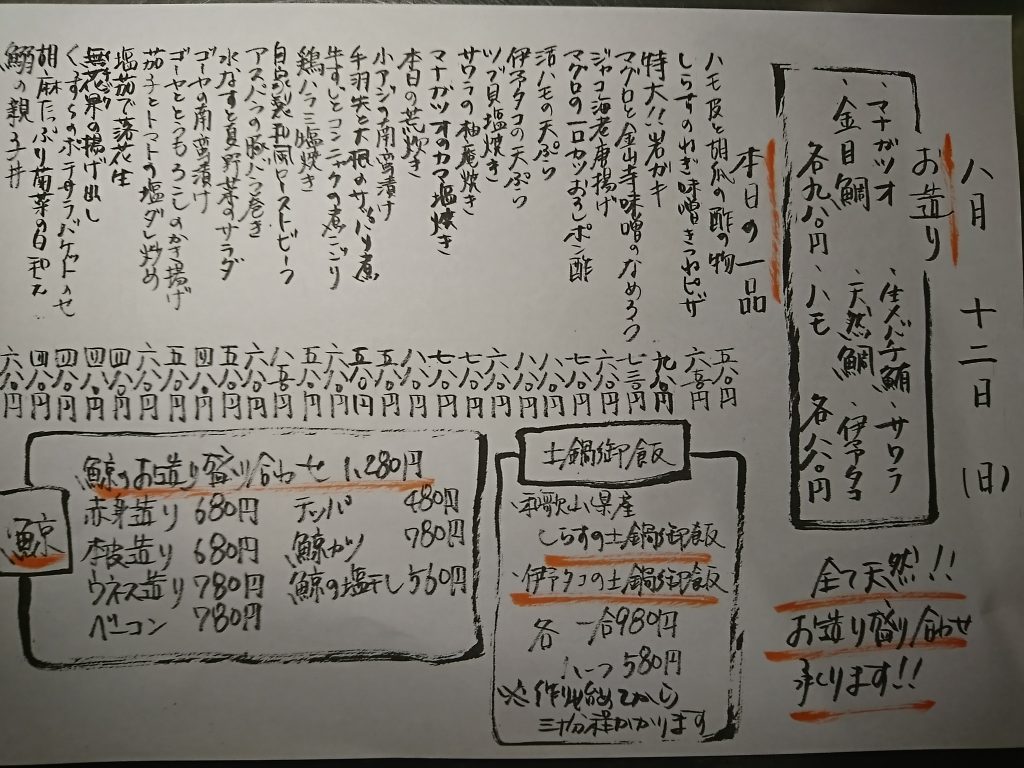 八月 十二日 (日)
お造り
・マナガツオ ・生メバチ鮪 ・サワラ
・金目鯛 ・天然鯛 ・伊予タコ
各九八〇円 ・ハモ 各八八〇円
全て天然!!
お造り盛り合わせ
承ります!!
本日の一品
ハモ皮と胡瓜の酢の物 五八〇円
しらすのねぎ味噌きつねピザ 六八〇円
特大!!岩ガキ 九八〇円
マグロと金山寺味噌のなめろう 七三〇円
ジャコ海老唐揚げ 六八〇円
マグロの一口カツおろしポン酢 七八〇円
活ハモの天ぷら 八八〇円
伊予タコの天ぷら 八八〇円
ツブ貝塩焼き 六八〇円
サワラの柚庵焼き 七八〇円
マナガツオのカマ塩焼き 七八〇円
本日の荒炊き 八八〇円
小アジの南蛮漬け 五八〇円
手羽先と大根のサッパリ煮 五八〇円
牛すじとコンニャクの煮こごり 六八〇円
鶏ハラミ塩焼き 五八〇円
自家製和風ローストビーフ 八五〇円
アスパラの豚バラ巻き 六八〇円
水なすと夏野菜のサラダ 五八〇円
ゴーヤの南蛮漬け 四八〇円
ゴーヤととうもろこしのかき揚げ 五八〇円
茄子とトマトの塩ダレ炒め 六八〇円
塩茹で落花生 四八〇円
無花果の揚げ出し 四八〇円
くずしらのポテサラバケットのせ 四八〇円
胡麻たっぷり南菜の白和え 四八〇円
鰯の親子丼 六八〇円
土鍋御飯
・和歌山県産
しらすの土鍋御飯
・伊予タコの土鍋御飯
各 一合980円
ハーフ580円
※作り始めてから
三十分程かかります
鯨
鯨のお造り盛り合わせ 1,280円
赤身造り 680円 テッパ 480円
本皮造り 680円 鯨カツ 780円
ウネス造り 780円 鯨の塩干し 560円
ベーコン 780円